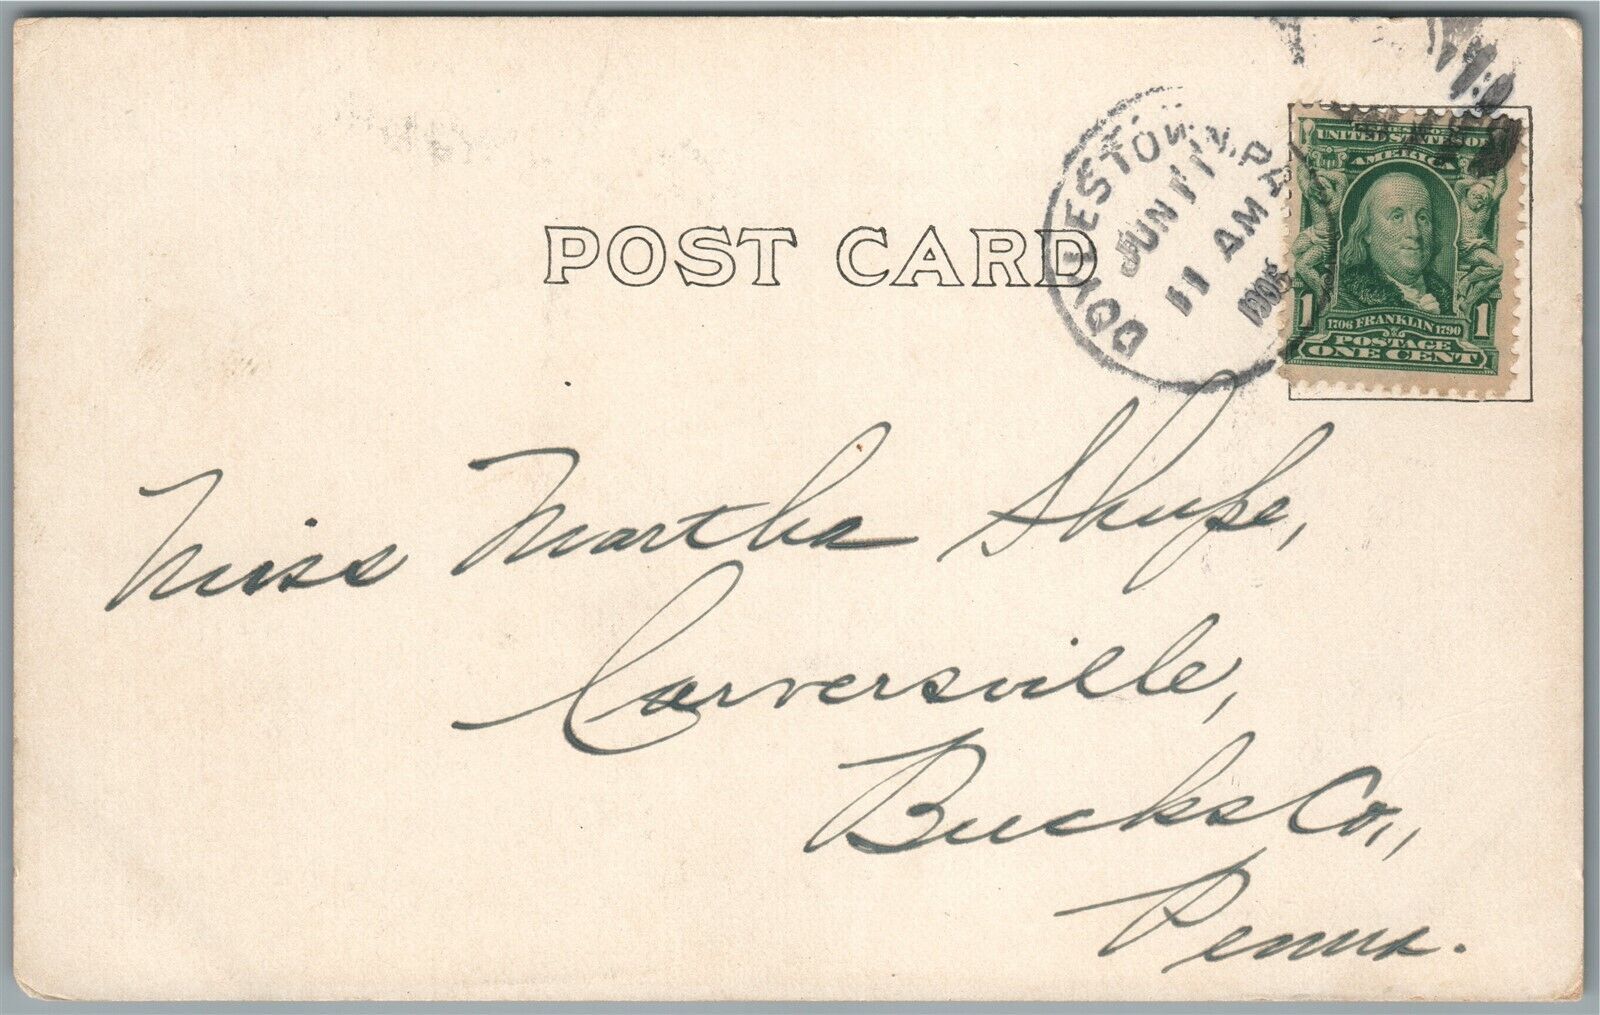 POST CARD
DOYLESTOWN, PA.
JUN 11
11 AM
UNITED STATES OF
AMERICA
1 1
1706 FRANKLIN 1790
POSTAGE
ONE CENT
Miss Martha Shupe,
Carversville,
Bucks Co.,
Penna.